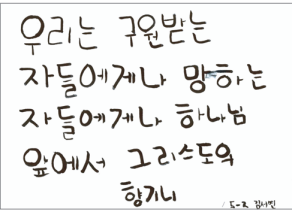 우리는 구원받는
자들에게나 망하는
자들에게나 하나님
앞에서 그리스도의
향기니
김서진